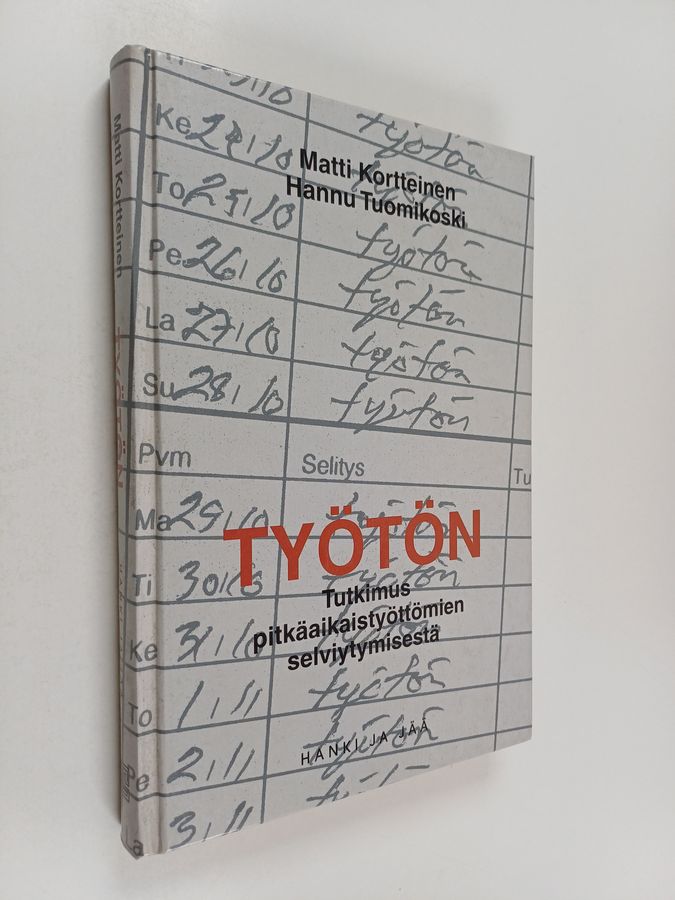 Matti Kortteinen
TYÖTÖN
työtön
Ke 24/10 työtön
Matti Kortteinen
Hannu Tuomikoski
To 25/10 työtön
Pe 26/10 työtön
La 27/10 työtön
Su 28/10 työtön
Pvm Selitys Tu
Ma 29/10 työtön
TYÖTÖN
Ti 30/10 työtön
Tutkimus
pitkäaikaistyöttömien
selviytymisestä
Ke 31/10
To 1/11 työtön
Pe 2/11 työtön
HANKI JA JÄÄ
3/11